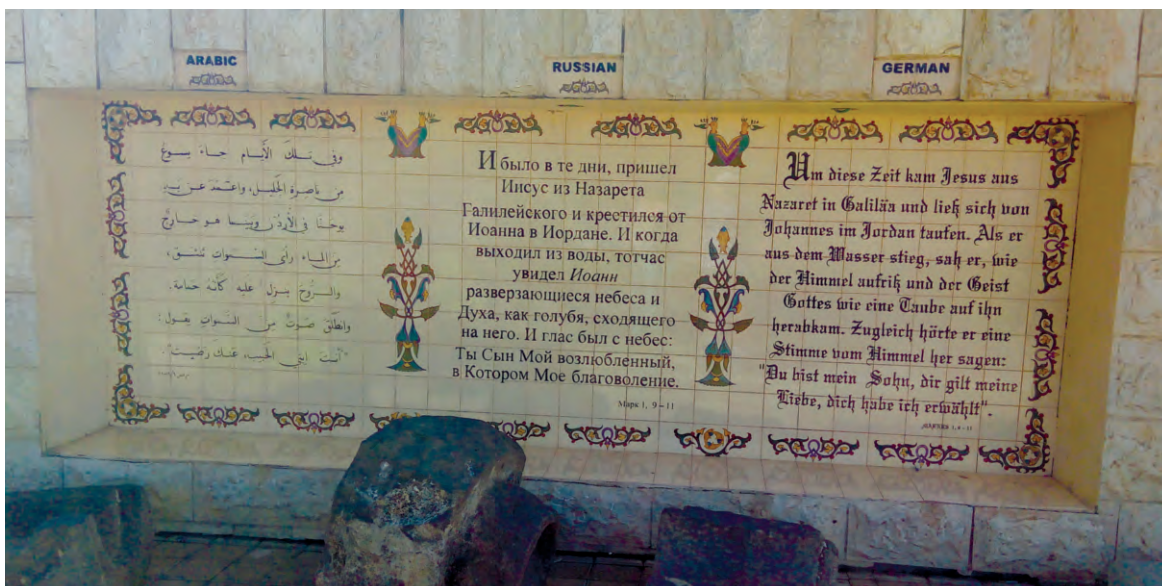 ARABIC
وفي تلك الأيام جاء يسوع
من ناصرة الجليل، واعتمد عن يد
يوحنا في الأردن وبينما هو خارج
من الماء رأى السموات تنشق،
والروح ينزل عليه كأنه حمامة.
وانطلق صوت من السموات يقول:
"أنت ابني الحبيب، عنك رضيت".
RUSSIAN
И было в те дни, пришел
Иисус из Назарета
Галилейского и крестился от
Иоанна в Иордане. И когда
выходил из воды, тотчас
увидел Иоанн
разверзающиеся небеса и
Духа, как голубя, сходящего
на него. И глас был с небес:
Ты Сын Мой возлюбленный,
в Котором Мое благоволение.
Марк 1, 9-11
GERMAN
Um diese Zeit kam Jesus aus
Nazaret in Galiläa und ließ sich von
Johannes im Jordan taufen. Als er
aus dem Wasser stieg, sah er, wie
der Himmel aufriß und der Geist
Gottes wie eine Taube auf ihn
herabkam. Zugleich hörte er eine
Stimme vom Himmel her sagen:
"Du bist mein Sohn, dir gilt meine
Liebe, dich habe ich erwählt".